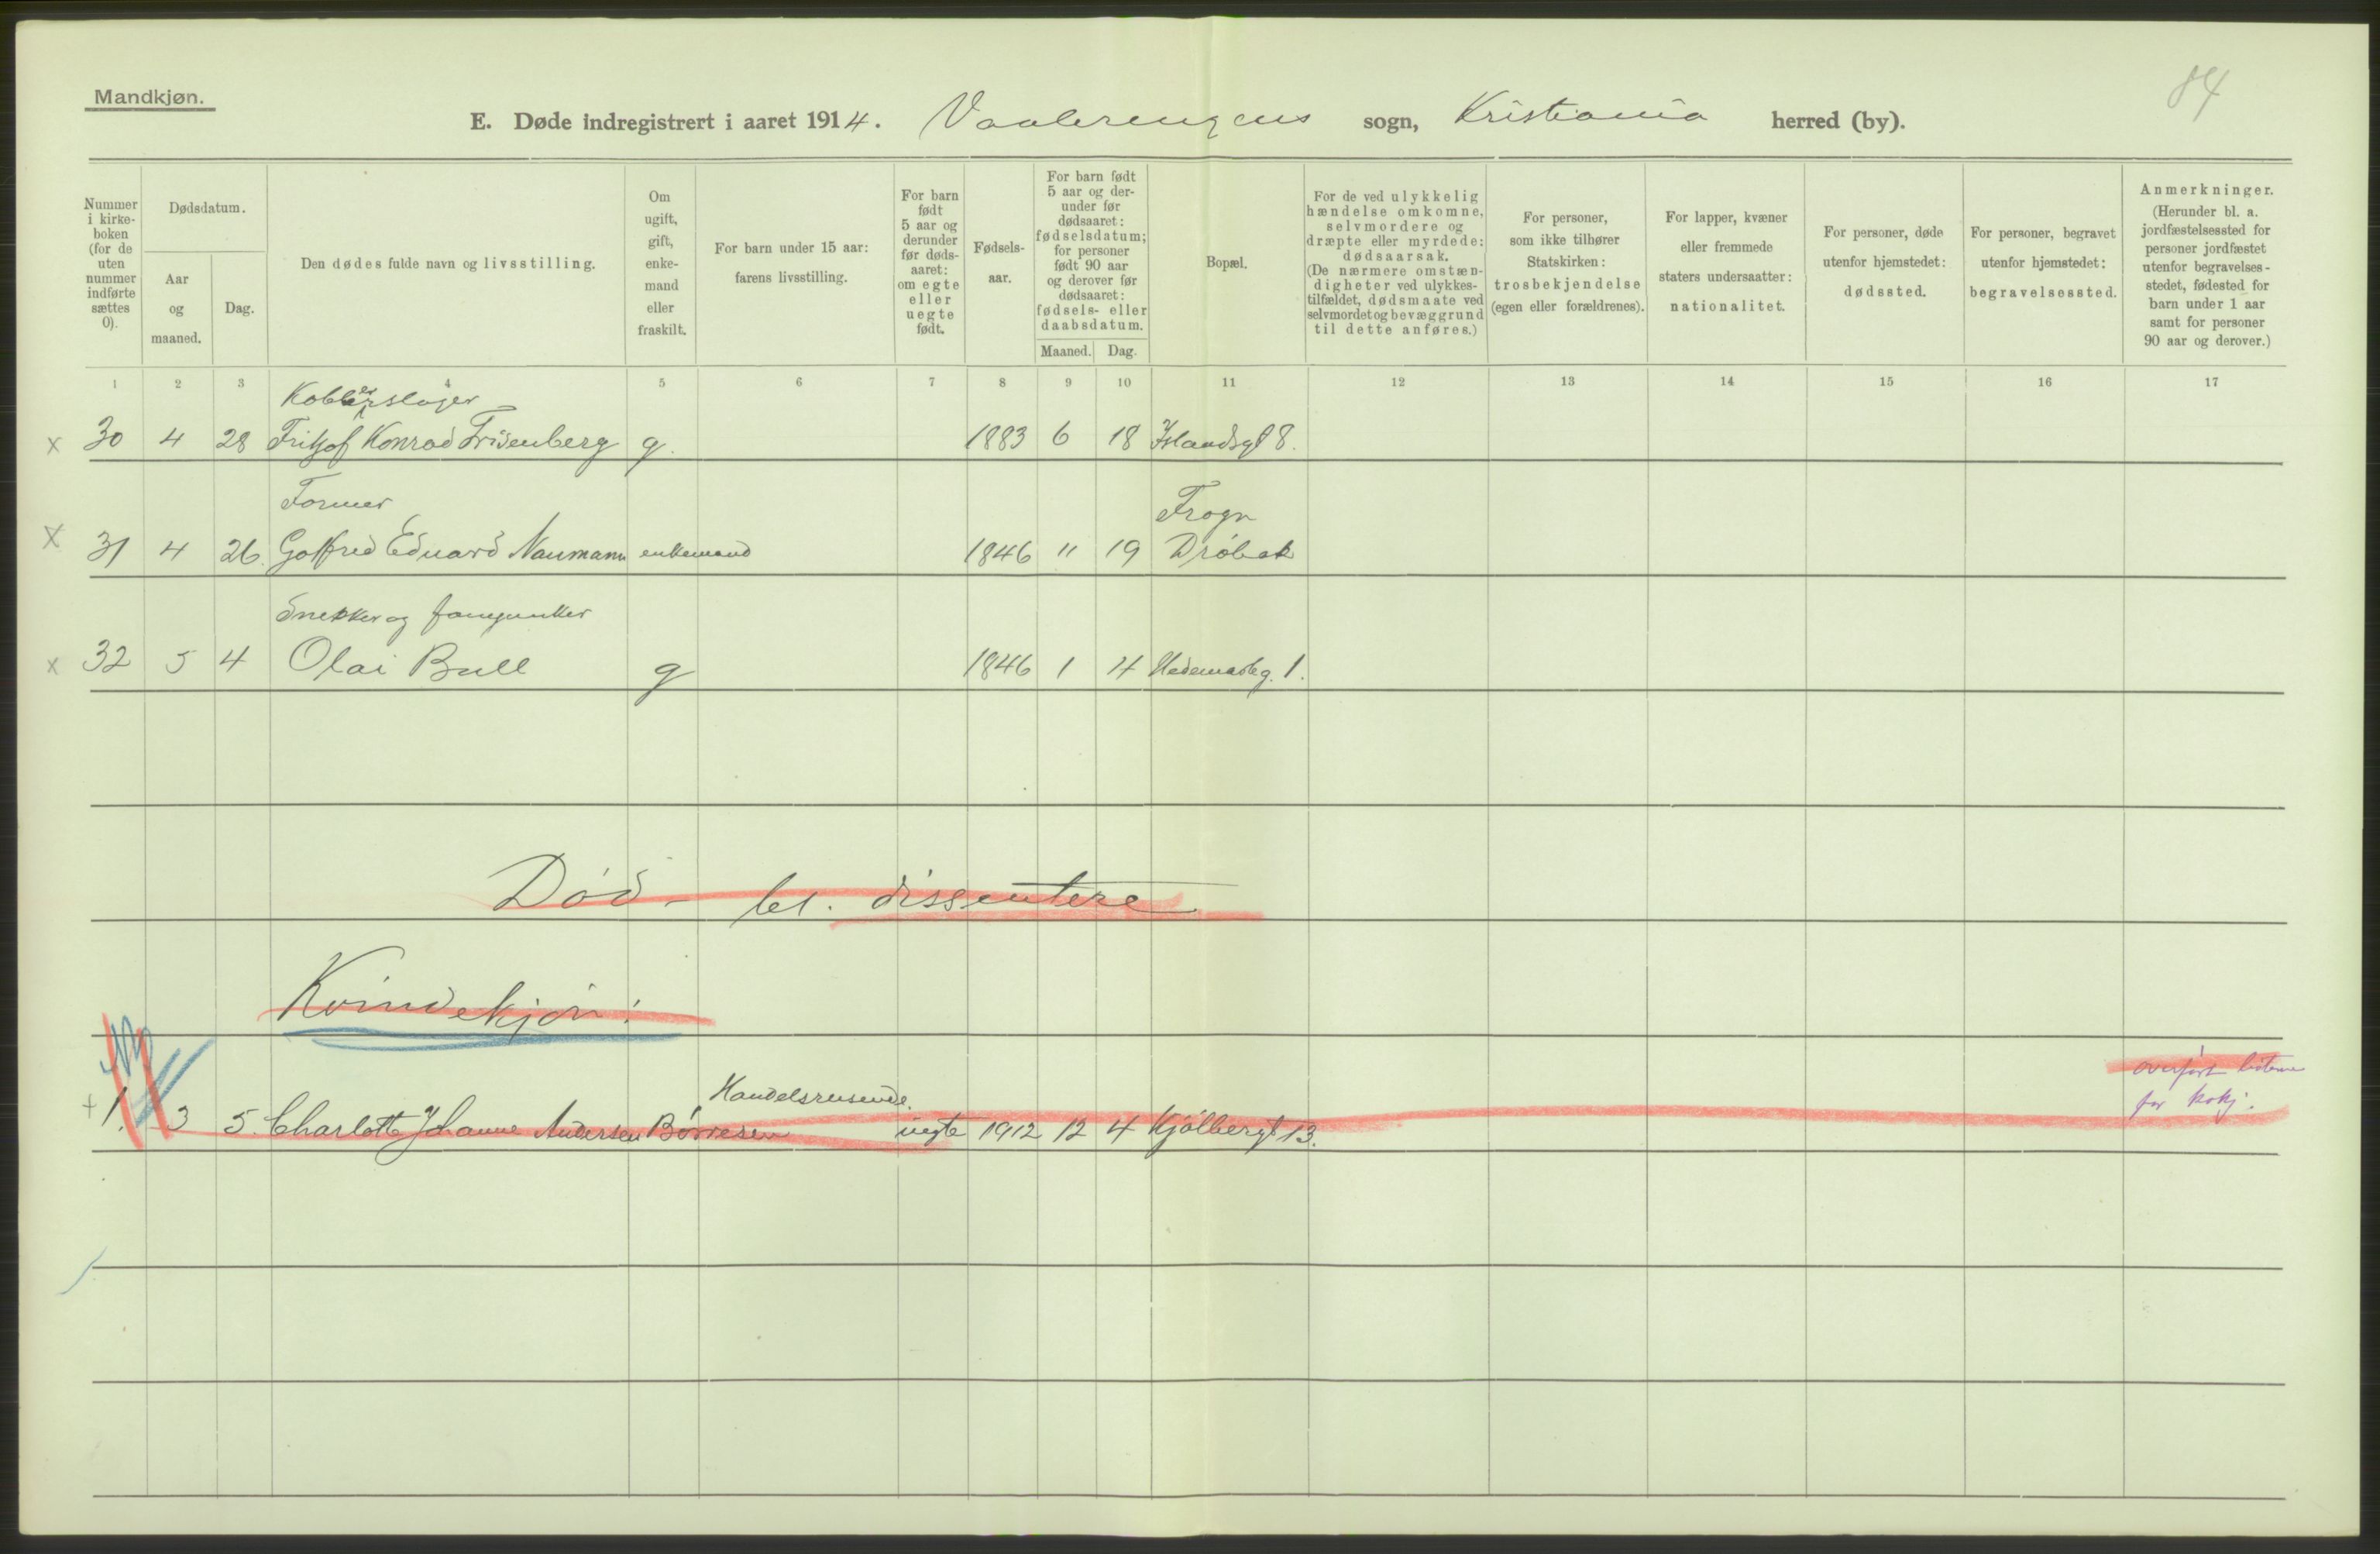 Mandkjøn.
84
E. Døde indregistrert i aaret 1914. Vaalerengens sogn, Kristiania herred (by).
Nummer i kirke- boken (for de uten nummer indførte sættes 0).
Dødsdatum.
Aar og maaned.
Dag.
Den dødes fulde navn og livsstilling.
Om ugift, gift, enke- mand eller fraskilt.
For barn under 15 aar: farens livsstilling.
For barn født 5 aar og derunder før døds- aaret: om egte eller uegte født.
Fødsels- aar.
For barn født 5 aar og der- under før dødsaaret: fødselsdatum; for personer født 90 aar og derover før dødsaaret: fødsels- eller daabsdatum.
Maaned. Dag.
Bopæl.
For de ved ulykkelig hændelse omkomne, selvmordere og dræpte eller myrdede: dødsaarsak. (De nærmere omstæn- digheter ved ulykkes- tilfældet, dødsmaate ved selvmordet og bevæggrund til dette anføres.)
For personer, som ikke tilhører Statskirken: trosbekjendelse (egen eller forældrenes).
For lapper, kvæner eller fremmede staters undersaatter: nationalitet.
For personer, døde utenfor hjemstedet: dødssted.
For personer, begravet utenfor hjemstedet: begravelsessted.
Anmerkninger. (Herunder bl. a. jordfæstelsessted for personer jordfæstet utenfor begravelses- stedet, fødested for barn under 1 aar samt for personer 90 aar og derover.)
1 2 3 4 5 6 7 8 9 10 11 12 13 14 15 16 17
Kobberslager
x 30 4 28 Fritjof Konrad Frisenberg g. 1883 6 18 Islandsgt 8.
Former Frogn
x 31 4 26. Gottfred Eduard Naumann enkemand 1846 11 19 Drøbak
Snekker og
x 32 5 4 Olai Bull g 1846 1 4 Hedemarkg. 1.
Død - bl. dissentere
Kvindekjøn:
Handelsreisende.
+ 1. 3 5. Charlotte Johanne Andersen Børresen uegte 1912 12 4 Kjølbergt 13.
overført listerne
for kvkj.